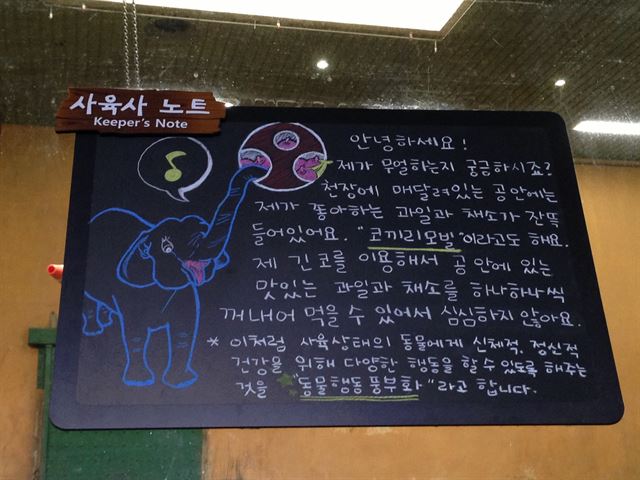 사육사 노트
Keeper's Note
안녕하세요!
제가 무얼하는지 궁금하시죠?
천장에 매달려있는 공안에는
제가 좋아하는 과일과 채소가 잔뜩
들어있어요. "코끼리모빌"이라고도 해요.
제 긴 코를 이용해서 공 안에 있는
맛있는 과일과 채소를 하나하나씩
꺼내어 먹을 수 있어서 심심하지 않아요.
* 이처럼 사육상태의 동물에게 신체적, 정신적
건강을 위해 다양한 행동을 할 수 있도록 해주는
것을 "동물행동 풍부화"라고 합니다.